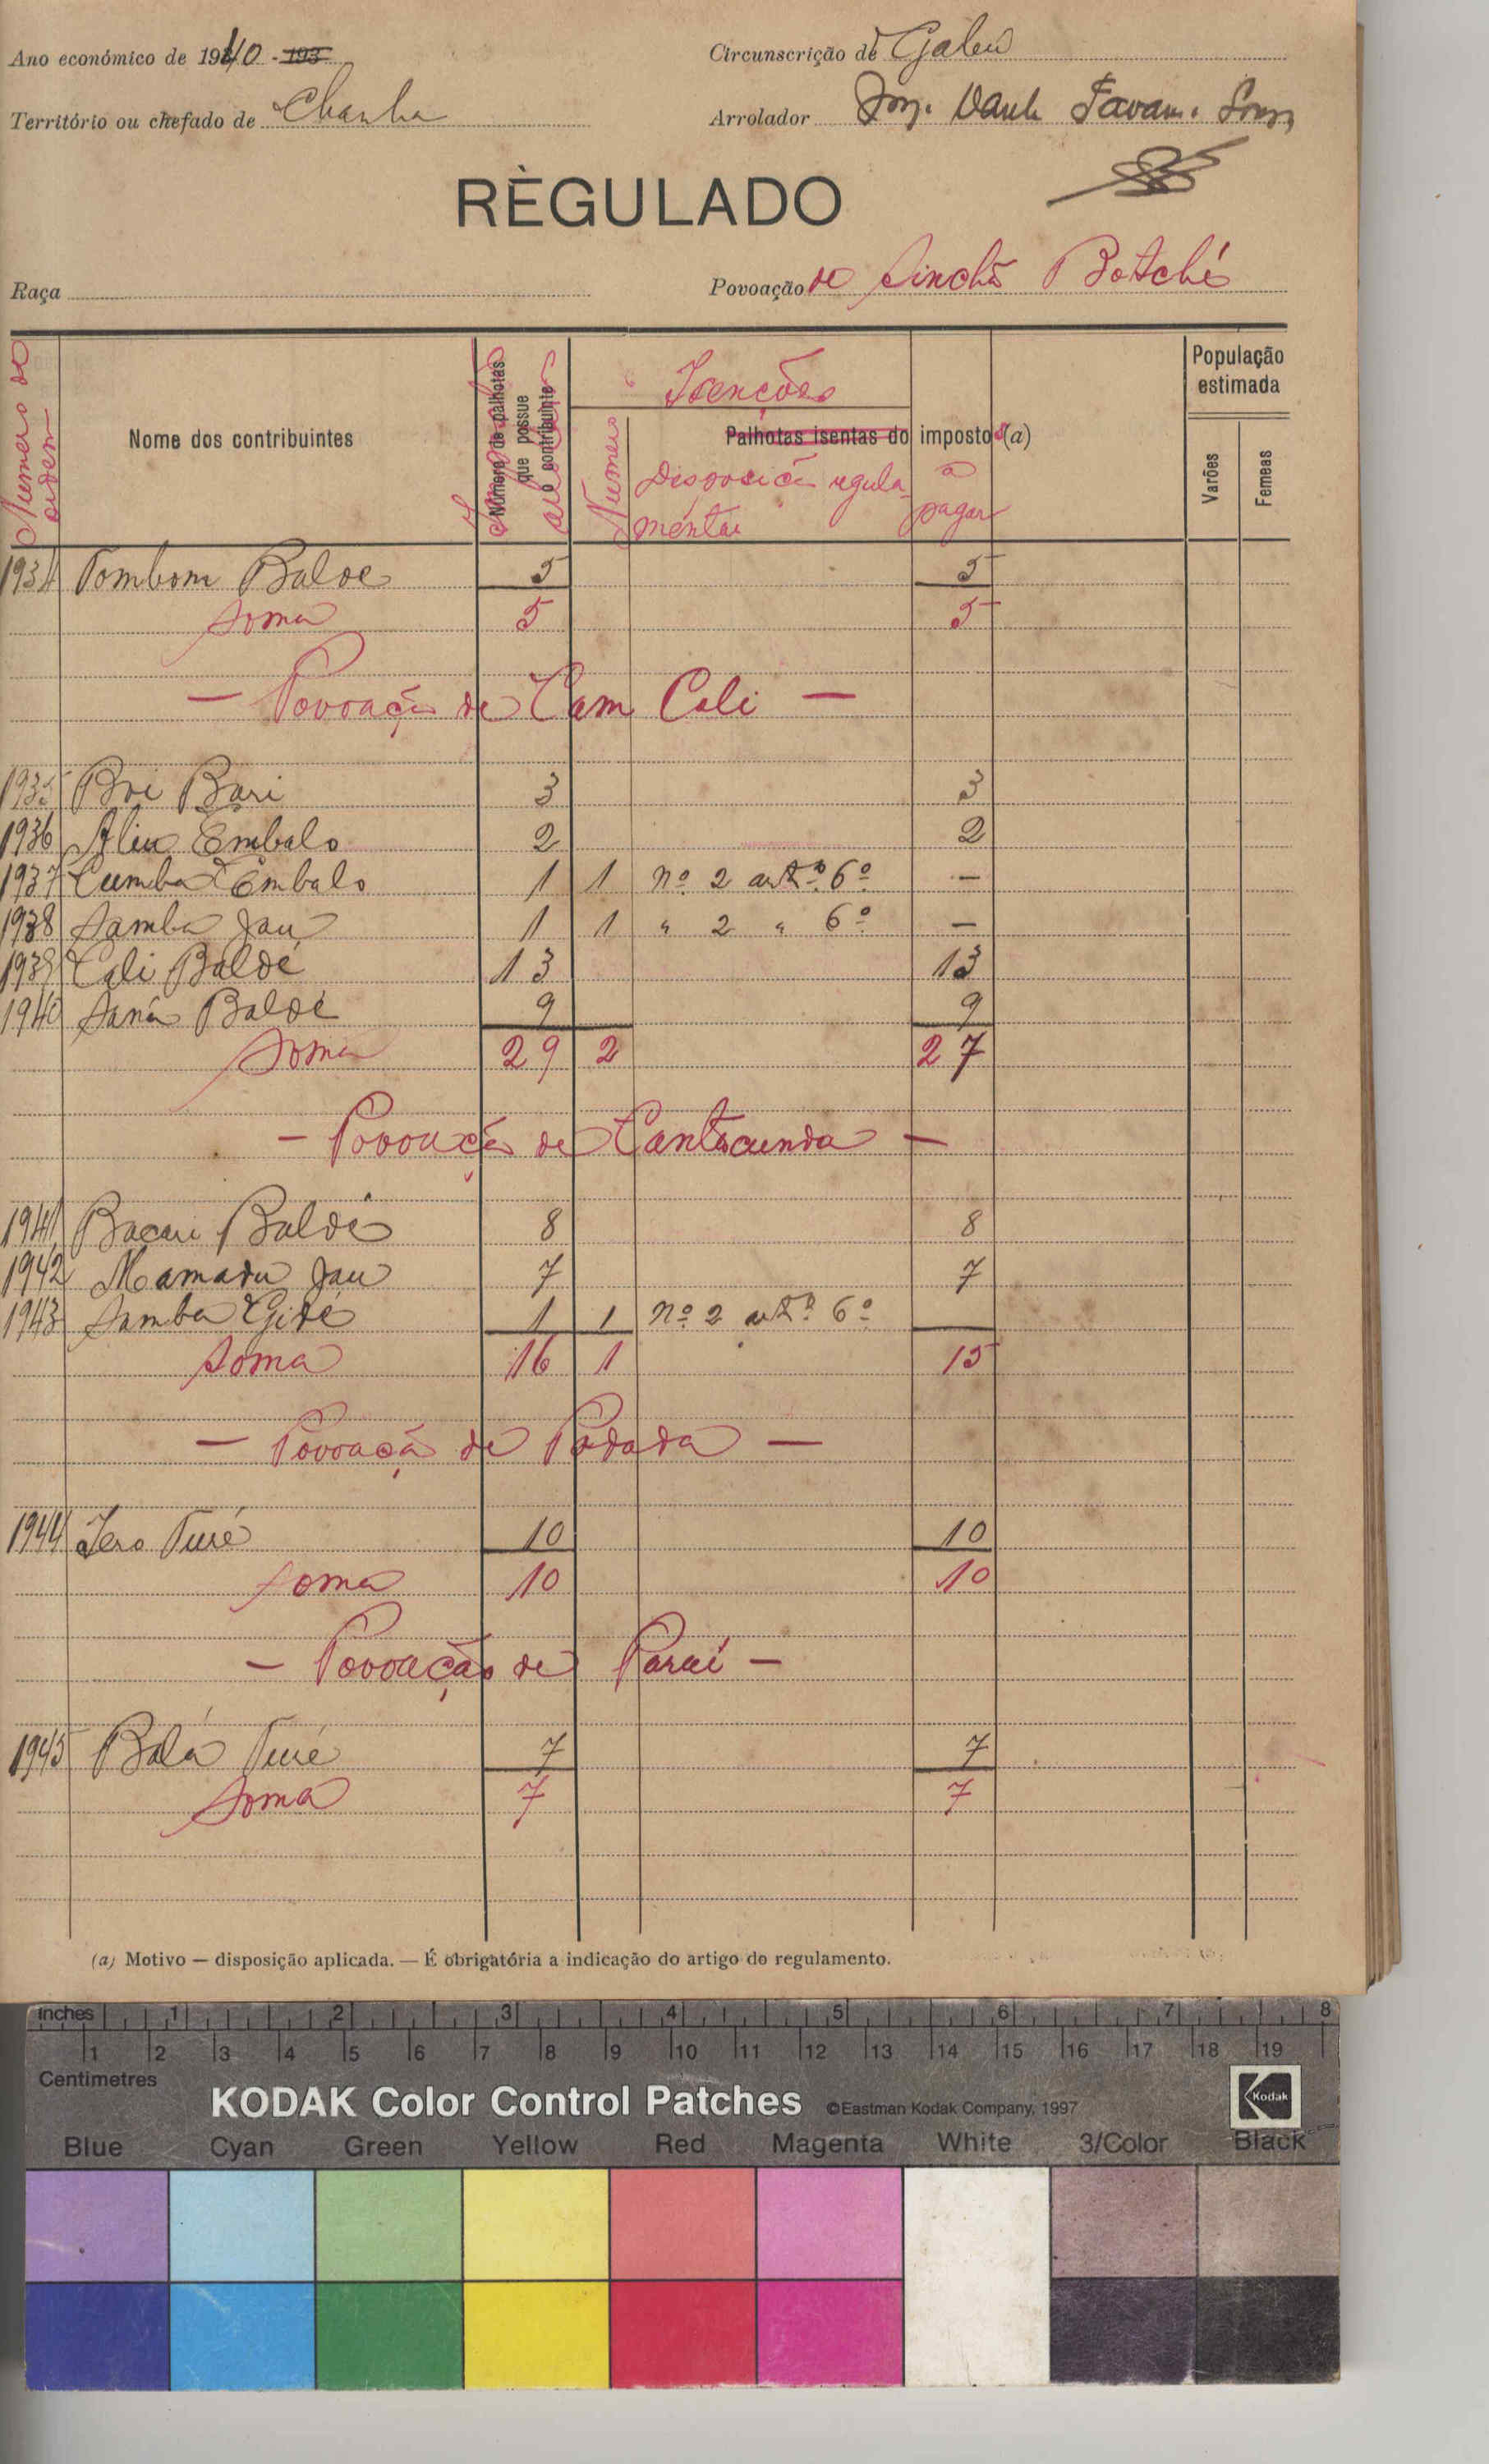 Ano económico de 1940 - 193
Circunscrição de Gabu
Território ou chefado de Chanha
Arrolador
RÈGULADO
Raça
Povoação de Sinchã Botché
Numero de ordem
Nome dos contribuintes
Número de palhotas que possue o contribuinte
Isenções
Palhotas isentas do impostos (a)
Numero
Disposição regula-
mentar
a
pagar
População
estimada
Varões
Femeas
1934 Tombom Balde 5 5
Soma 5 5
— Povoação de Cam Cali —
1935 Boi Bari 3 3
1936 Aliu Embalo 2 2
1937 Cumba Embalo 1 1 nº 2 artº 6º —
1938 Samba Jau 1 1 " 2 " 6º —
1939 Cali Baldé 13 13
1940 Saná Baldé 9 9
Soma 29 2 27
— Povoação de Cantacunda —
1941 Bacari Baldé 8 8
1942 Mamadu Jau 7 7
1943 Samba Gidé 1 1 nº 2 artº 6º
Soma 16 1 15
— Povoação de Padada —
1944 Jero Turé 10 10
Soma 10 10
— Povoação de Parai —
1945 Balá Turé 7 7
Soma 7 7
(a) Motivo — disposição aplicada. — É obrigatória a indicação do artigo do regulamento.
inches 1 2 3 4 5 6 7 8
1 2 3 4 5 6 7 8 9 10 11 12 13 14 15 16 17 18 19
Centimetres
KODAK Color Control Patches ©Eastman Kodak Company, 1997 Kodak
Blue Cyan Green Yellow Red Magenta White 3/Color Black